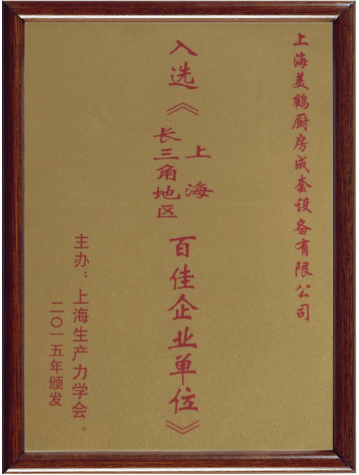 上海美鹤厨房成套设备有限公司
入选《上海
长三角地区
百佳企业单位》
主办：上海生产力学会。
二〇一五年颁发